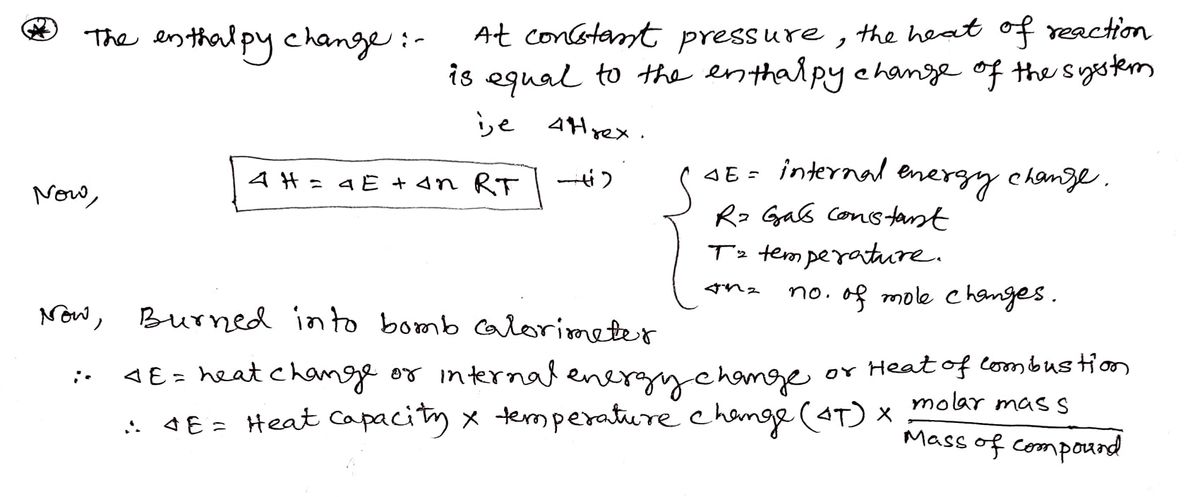 ⊛ The enthalpy change :- At constant pressure, the heat of reaction
is equal to the enthalpy change of the system
i,e ΔHrex.
Now, ΔH = ΔE + Δn RT —(i)
ΔE = internal energy change.
R = Gas constant
T = temperature.
Δn = no. of mole changes.
Now, Burned into bomb calorimeter
∴ ΔE = heat change or internal energy change or Heat of combustion
∴ ΔE = Heat capacity × temperature change (ΔT) × molar mass / Mass of compound